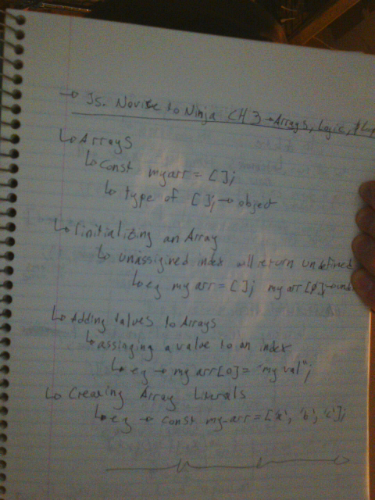 → JS. Novice to Ninja CH 3 → Arrays, Logic, &
↳ Arrays
↳ const myarr = [];
↳ type of []; → object
↳ initializing an Array
↳ unassigned index will return undefined
↳ eg myarr = []; myarr[0] →
↳ Adding values to Arrays
↳ assigning a value to an index
↳ eg → myarr[0] = "my val";
↳ Creating Array Literals
↳ eg → const my-arr = ['a', 'b', 'c'];